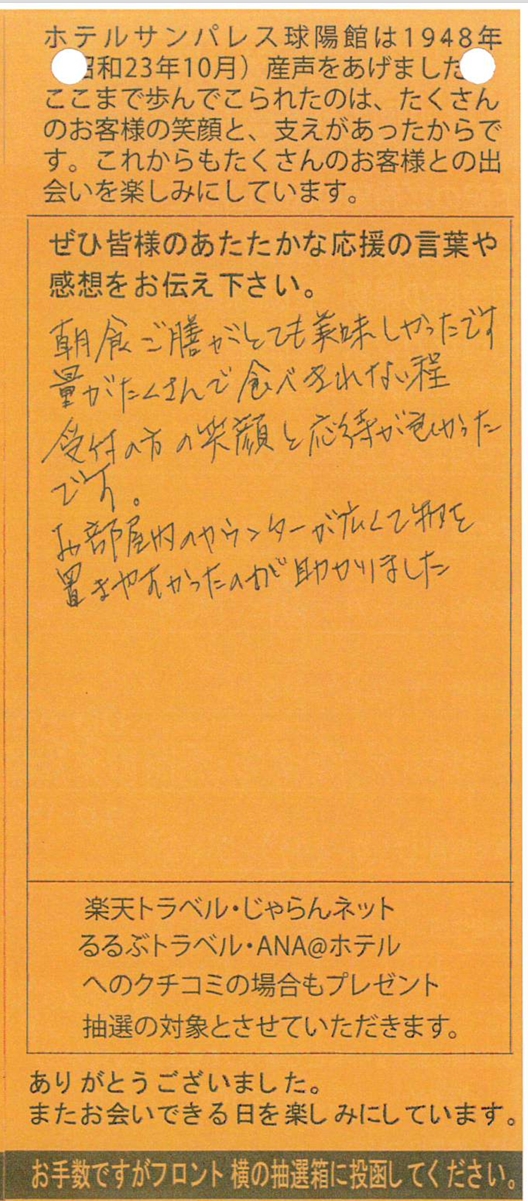 ホテルサンパレス球陽館は1948年
昭和23年10月）産声をあげました
ここまで歩んでこられたのは、たくさん
のお客様の笑顔と、支えがあったからで
す。これからもたくさんのお客様との出
会いを楽しみにしています。
ぜひ皆様のあたたかな応援の言葉や
感想をお伝え下さい。
朝食ご膳がとても美味しかったです
量がたくさんで食べきれない程
受付の方の笑顔と応待が良かった
です。
お部屋内のカウンターが広くて物を
置きやすかったのが助かりました
楽天トラベル・じゃらんネット
るるぶトラベル・ANA@ホテル
へのクチコミの場合もプレゼント
抽選の対象とさせていただきます。
ありがとうございました。
またお会いできる日を楽しみにしています。
お手数ですがフロント横の抽選箱に投函してください。